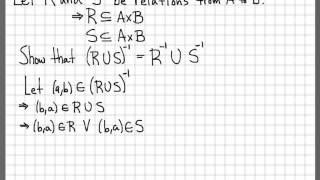 Let R and S be relations from A to B.
⇒ R ⊆ A×B
S ⊆ A×B
Show that (R∪S)⁻¹ = R⁻¹ ∪ S⁻¹
Let (a,b) ∈ (R∪S)⁻¹
⇒ (b,a) ∈ R ∪ S
⇒ (b,a) ∈ R ∨ (b,a) ∈ S